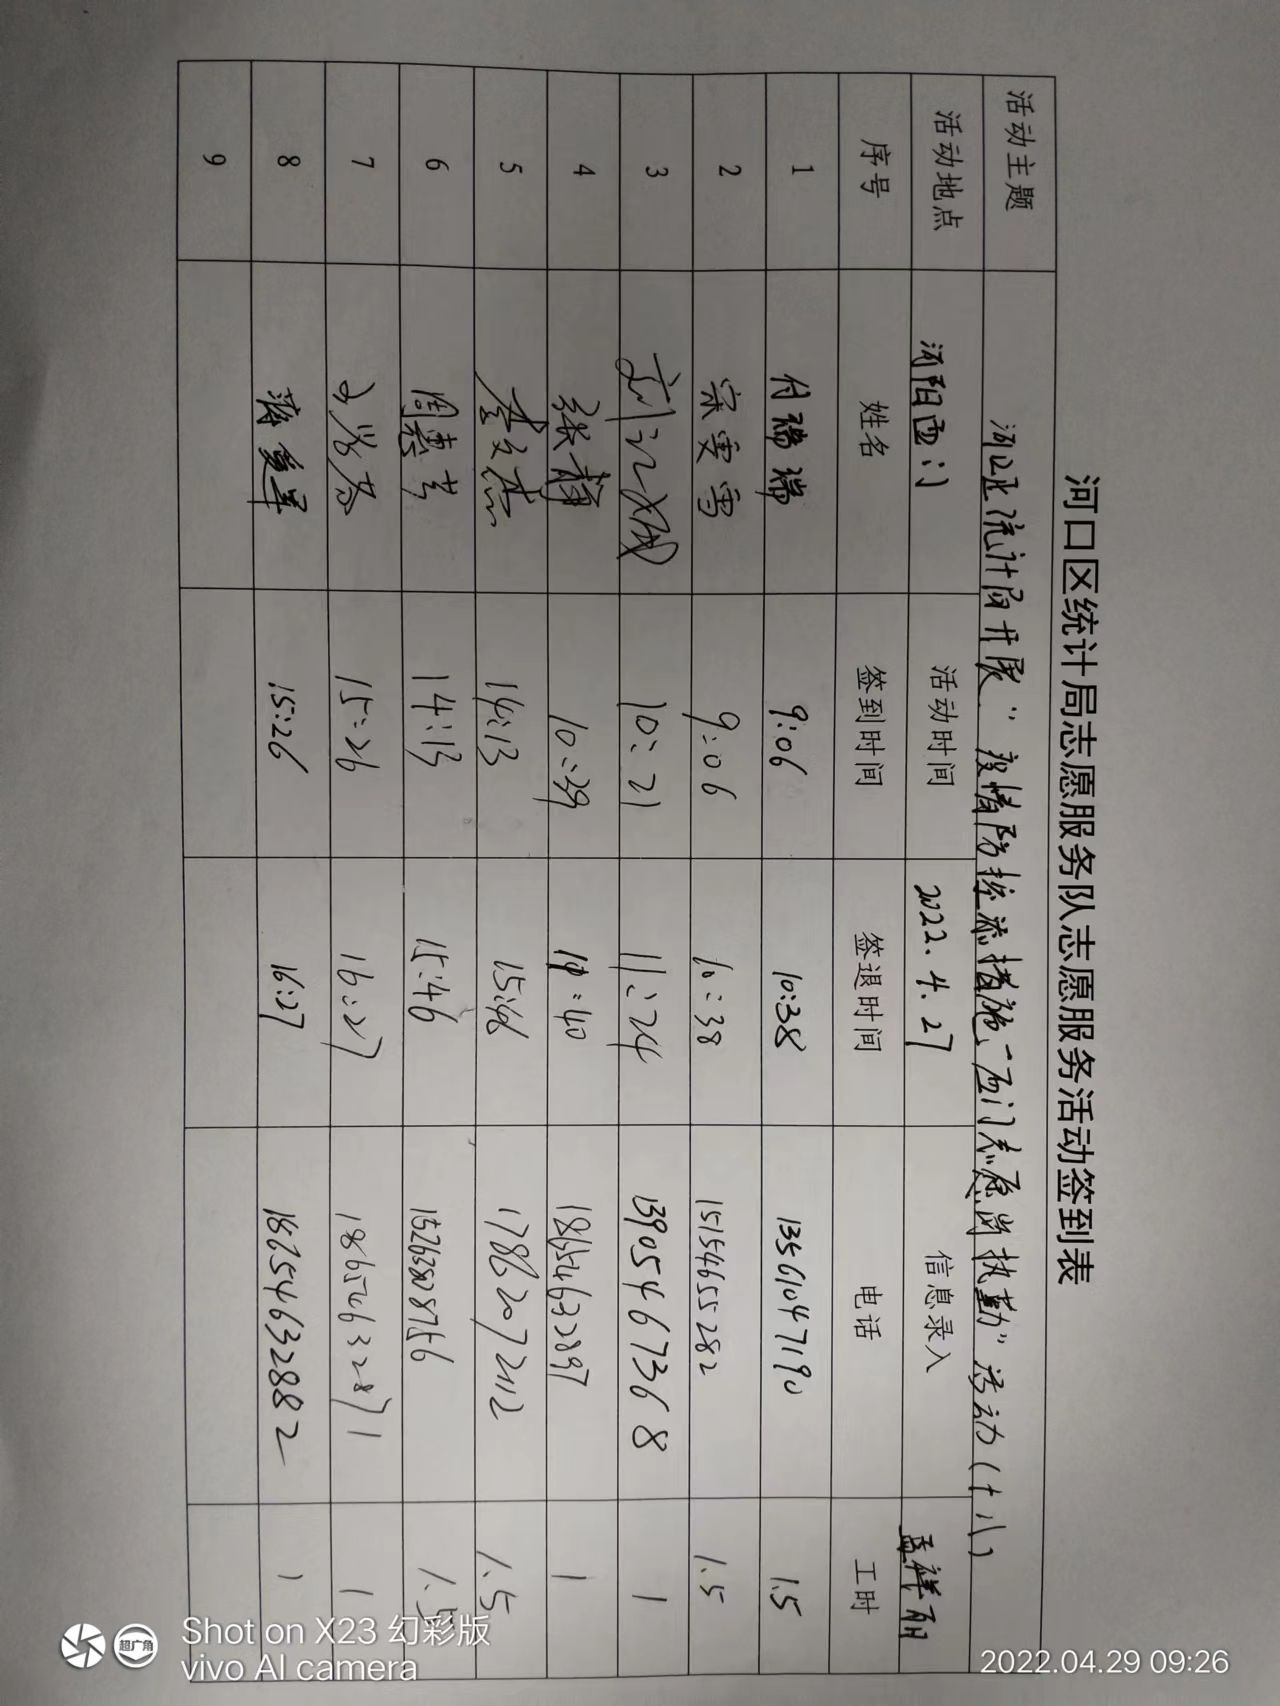 河口区统计局志愿服务队志愿服务活动签到表
活动主题 河口区统计局开展“疫情防控添措施-西门志愿岗执勤”活动(十八)
活动地点 河阳西门 活动时间 2022.4.27 信息录入 孟祥丽
序号 姓名 签到时间 签退时间 电话 工时
1 付瑞瑞 9:06 10:38 13561047190 1.5
2 宋雯雪 9:06 10:38 15154655282 1.5
3 10:21 11:24 13905467368 1
4 张静 10:39 :40 18654632897 1
5 李文杰 14:13 15:46 17862072112 1.5
6 周惠芳 14:13 15:46 15263808756 1.5
7 15:26 16:27 18654632871 1
8 15:26 16:27 18654632882 1
9
Shot on X23 幻彩版
vivo AI camera
超广角
2022.04.29 09:26